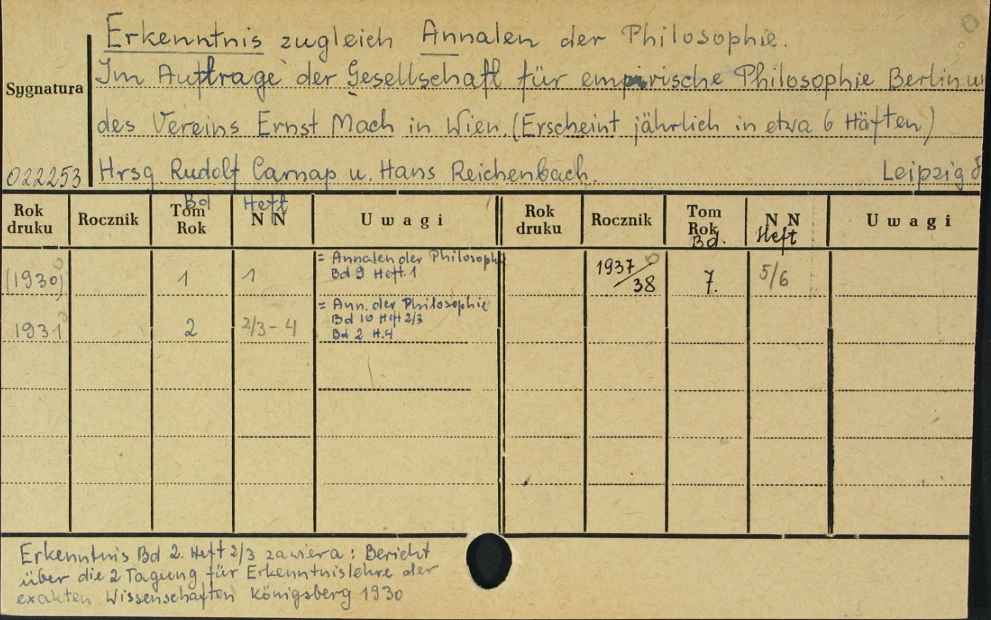 Erkenntnis zugleich Annalen der Philosophie.
Im Auftrage der Gesellschaft für empirische Philosophie Berlin u
Sygnatura
des Vereins Ernst Mach in Wien. (Erscheint jährlich in etwa 6 Häften)
022253 Hrsg Rudolf Carnap u. Hans Reichenbach. Leipzig
Rok druku Rocznik Tom Bd Rok Heft N N Uwagi Rok druku Rocznik Tom Rok Bd. N N Heft Uwagi
(1930) 1 1 = Annalen der Philosoph 1937/38 7. 5/6
Bd 9 Heft 1
1931 2 2/3 - 4 = Ann. der Philosophie
Bd 10 Heft 2/3
Bd 2 H.4
Erkenntnis Bd 2. Heft 2/3 zawiera: Bericht
über die 2 Tagung für Erkenntnislehre der
exakten Wissenschaften Königsberg 1930